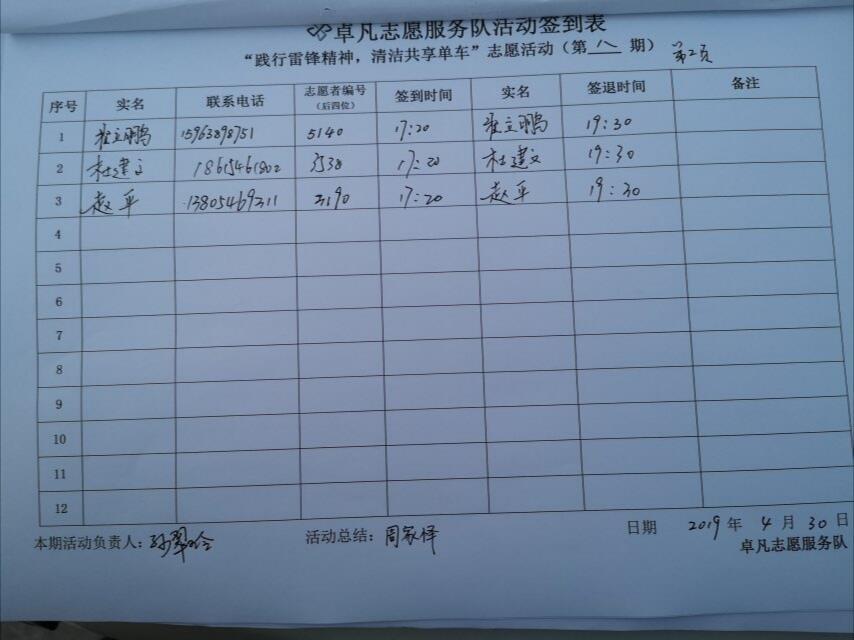 卓凡志愿服务队活动签到表
“践行雷锋精神，清洁共享单车”志愿活动（第 八 期） 第2页
序号 实名 联系电话 志愿者编号（后四位） 签到时间 实名 签退时间 备注
1 崔立鹏 15963898751 5140 17:20 崔立鹏 19:30
2 杜建文 18615461802 3538 17:20 杜建文 19:30
3 赵平 13805469311 3190 17:20 赵平 19:30
4
5
6
7
8
9
10
11
12
本期活动负责人： 活动总结：周家怿 日期 2019 年 4 月 30 日
卓凡志愿服务队